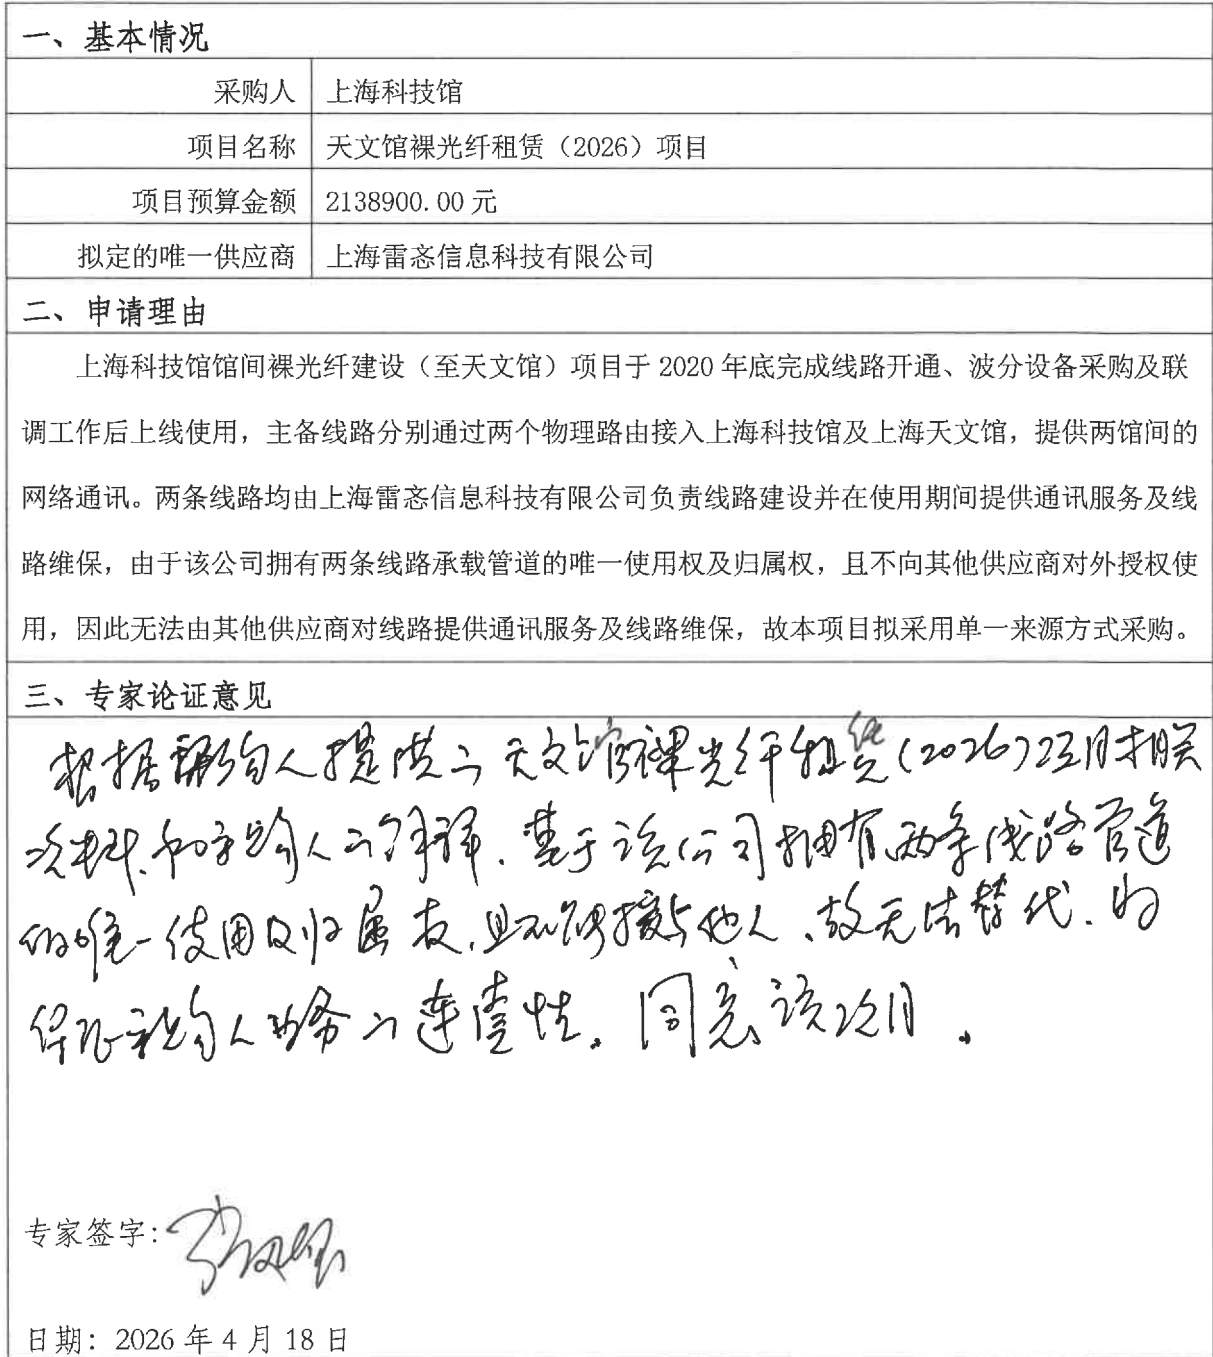 一、基本情况
采购人 上海科技馆
项目名称 天文馆裸光纤租赁（2026）项目
项目预算金额 2138900.00 元
拟定的唯一供应商 上海雷忞信息科技有限公司
二、申请理由
上海科技馆馆间裸光纤建设（至天文馆）项目于 2020 年底完成线路开通、波分设备采购及联
调工作后上线使用，主备线路分别通过两个物理路由接入上海科技馆及上海天文馆，提供两馆间的
网络通讯。两条线路均由上海雷忞信息科技有限公司负责线路建设并在使用期间提供通讯服务及线
路维保，由于该公司拥有两条线路承载管道的唯一使用权及归属权，且不向其他供应商对外授权使
用，因此无法由其他供应商对线路提供通讯服务及线路维保，故本项目拟采用单一来源方式采购。
三、专家论证意见
根据采购人提供的天文馆裸光纤租赁(2026)项目相关
资料、和采购人的解释、基于该公司拥有两条线路管道
的唯一使用及归属权、且不授与他人、故无法替代、为
保证采购人业务的连续性。同意该项目。
专家签字:
日期: 2026 年 4 月 18 日